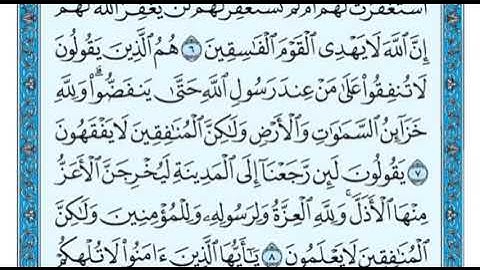 أَسْتَغْفَرْتَ لَهُمْ أَمْ لَمْ تَسْتَغْفِرْ لَهُمْ لَن يَغْفِرَ ٱللَّهُ لَهُمْ
إِنَّ ٱللَّهَ لَا يَهْدِى ٱلْقَوْمَ ٱلْفَـٰسِقِينَ ٦ هُمُ ٱلَّذِينَ يَقُولُونَ
لَا تُنفِقُوا۟ عَلَىٰ مَنْ عِندَ رَسُولِ ٱللَّهِ حَتَّىٰ يَنفَضُّوا۟ ۗ وَلِلَّهِ
خَزَآئِنُ ٱلسَّمَـٰوَٰتِ وَٱلْأَرْضِ وَلَـٰكِنَّ ٱلْمُنَـٰفِقِينَ لَا يَفْقَهُونَ
٧ يَقُولُونَ لَئِن رَّجَعْنَآ إِلَى ٱلْمَدِينَةِ لَيُخْرِجَنَّ ٱلْأَعَزُّ
مِنْهَا ٱلْأَذَلَّ ۚ وَلِلَّهِ ٱلْعِزَّةُ وَلِرَسُولِهِۦ وَلِلْمُؤْمِنِينَ وَلَـٰكِنَّ
ٱلْمُنَـٰفِقِينَ لَا يَعْلَمُونَ ٨ يَـٰٓأَيُّهَا ٱلَّذِينَ ءَامَنُوا۟ لَا تُلْهِكُمْ